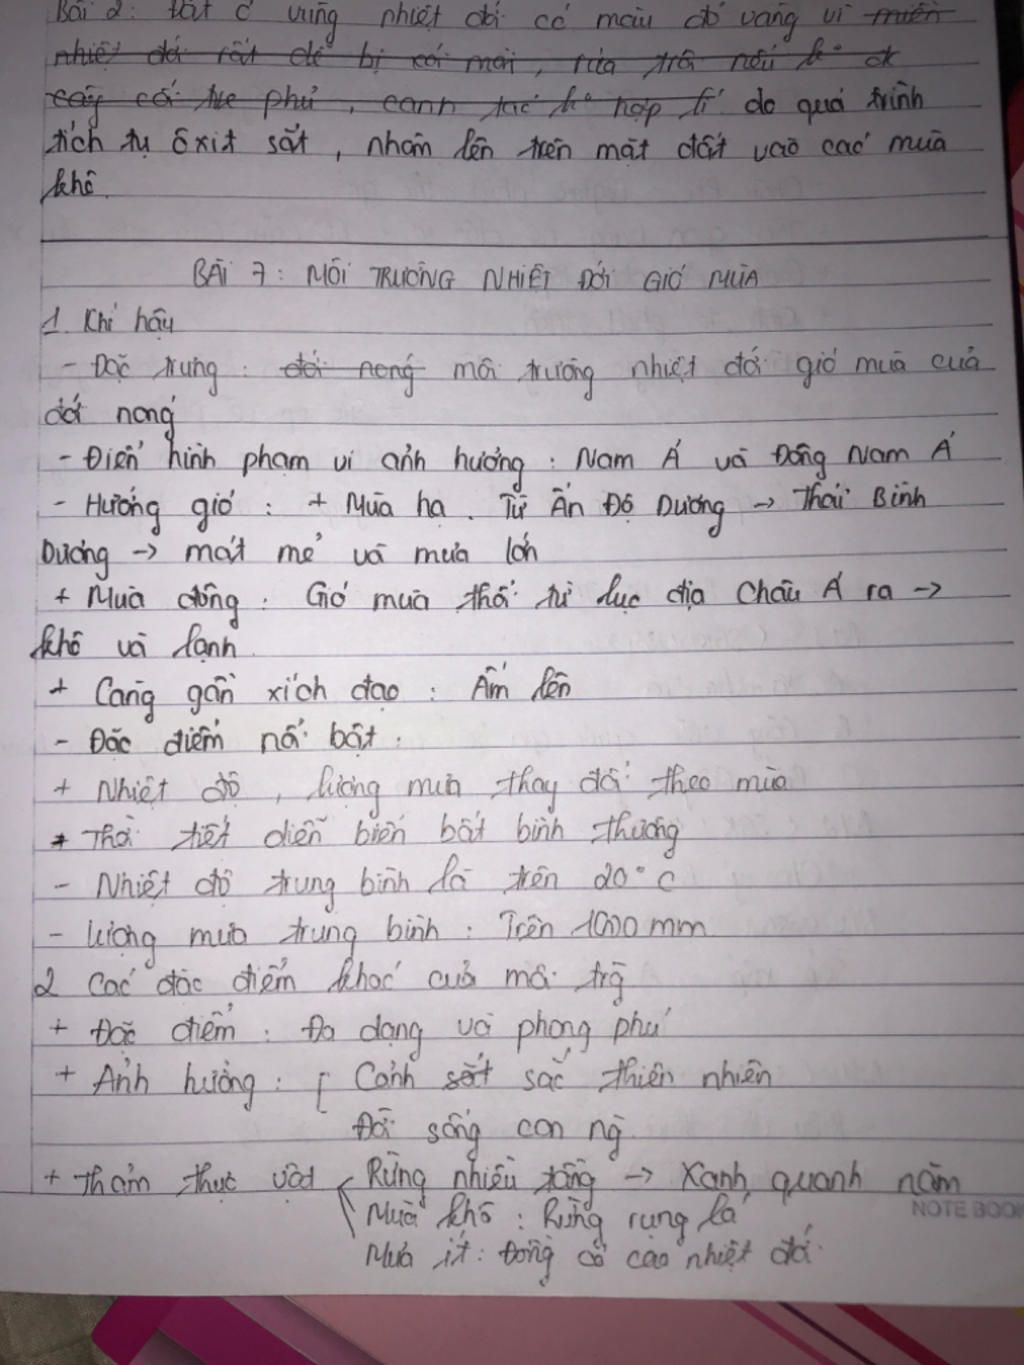 Bài 2: Đất ở vùng nhiệt đới có màu đỏ vàng vì miền
nhiệt đới rất dễ bị xói mòn, rửa trôi nếu k° ok
cây cối che phủ, canh tác k° hợp lí do quá trình
tích tụ ôxit sắt, nhôm lên trên mặt đất vào các mùa
khô.
BÀI 7: MÔI TRƯỜNG NHIỆT ĐỚI GIÓ MÙA
1. Khí hậu
- Đặc trưng : đới nóng môi trường nhiệt đới gió mùa của
đới nóng
- Điển hình phạm vi ảnh hưởng : Nam Á và Đông Nam Á
- Hướng gió : + Mùa hạ . Từ Ấn Độ Dương → Thái Bình
Dương → mát mẻ và mưa lớn
+ Mùa đông : Gió mùa thổi từ lục địa Châu Á ra →
khô và lạnh
+ Càng gần xích đạo : Ấm lên
- Đặc điểm nổi bật :
+ Nhiệt độ , lượng mưa thay đổi theo mùa
+ Thời tiết diễn biến bất bình thường
- Nhiệt độ trung bình là trên 20°C
- Lượng mưa trung bình : Trên 1000 mm
2 Các đặc điểm khác của môi trg
+ Đặc điểm : Đa dạng và phong phú
+ Ảnh hưởng : [ Cảnh sắt sắc thiên nhiên
Đời sống con ng
+ Thảm thực vật Rừng nhiều tầng → Xanh quanh năm
Mùa khô : Rừng rụng lá
Mưa ít : Đồng cỏ cao nhiệt đới.
NOTE BOOK